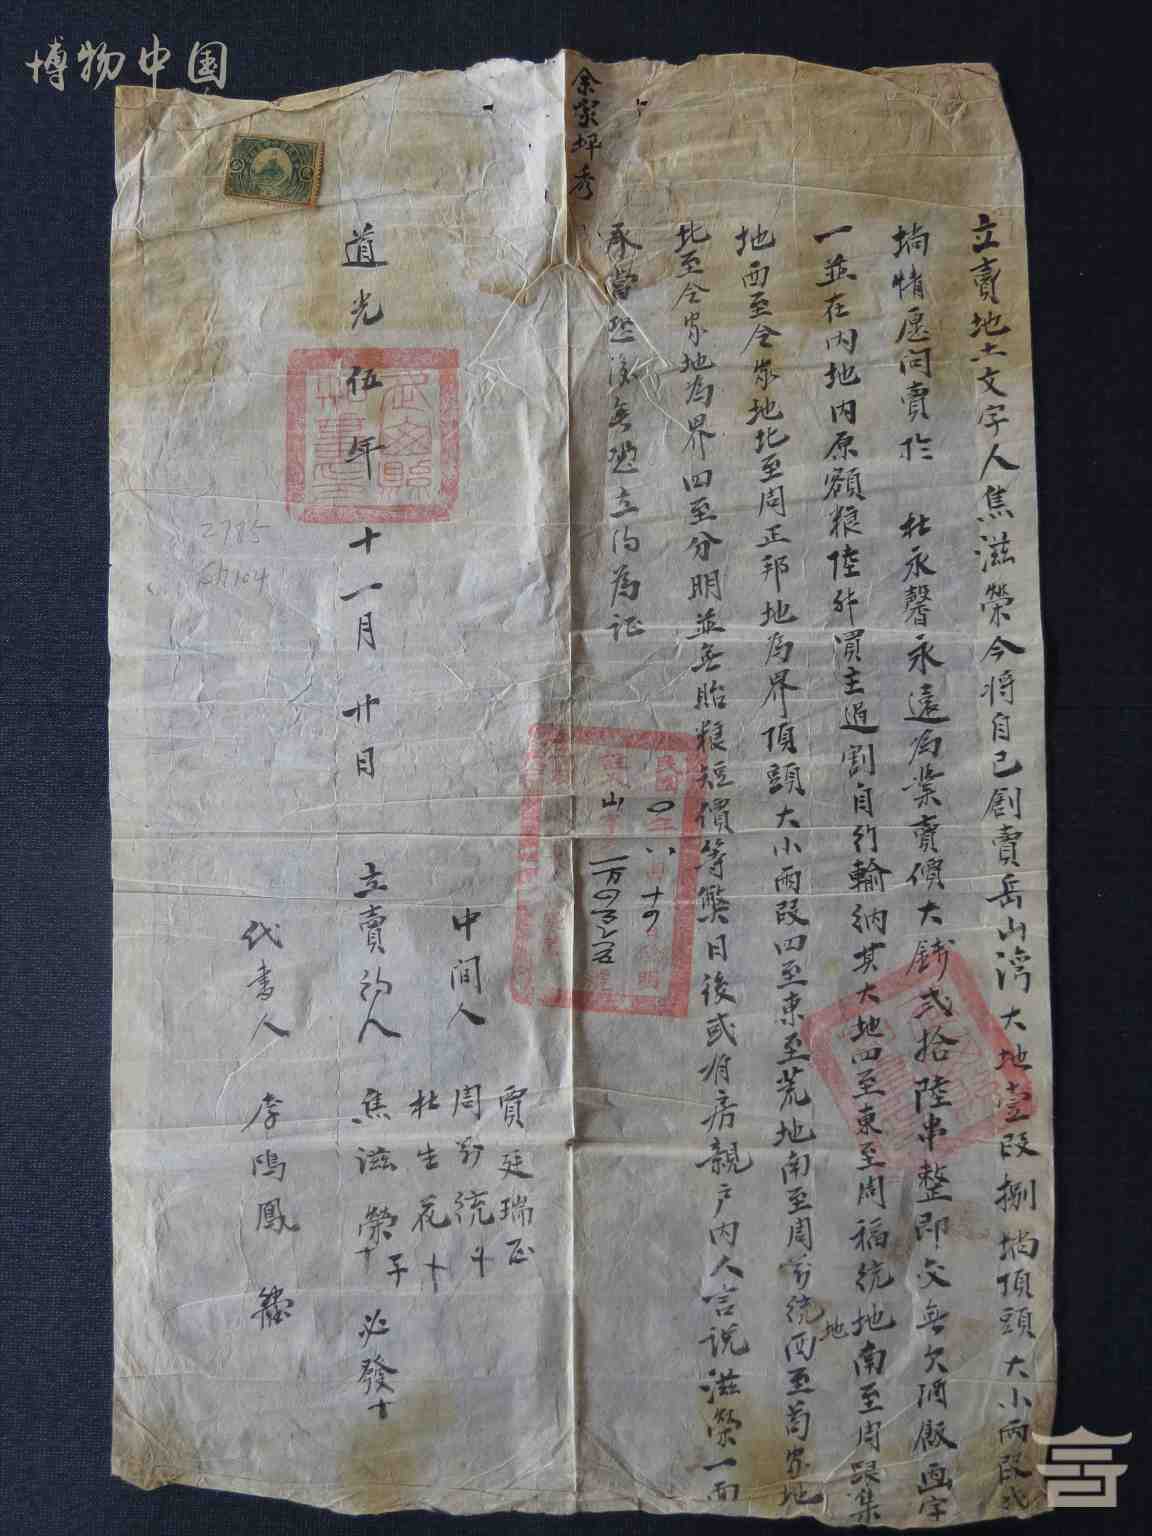 博物中国
余家坪 秀
立賣地土文字人焦滋榮今将自己創賣岳山湾大地壹段捌垧頂頭大小兩段弍
垧情愿问賣於 杜永馨永遠為業賣價大錢弍拾陸串整即交無欠酒飯画字
一並在内地内原額粮陸升買主過割自行輸納其大地四至東至周福統地南至周跟集
地
地西至仝家地北至周正邦地為界頂頭大小兩段四至東至荒地南至周万統西至苟家地
北至仝家地為界四至分明並無貽粮短價等獘日後或有房親户内人言说滋榮一面
承當恐後無凴立约為证
道光伍年十一月廿日
中间人 賈廷瑞 正
周万統 十
杜生花 十
立賣约人 焦滋榮 十 子 必發 十
代書人 李鳴鳳
2785